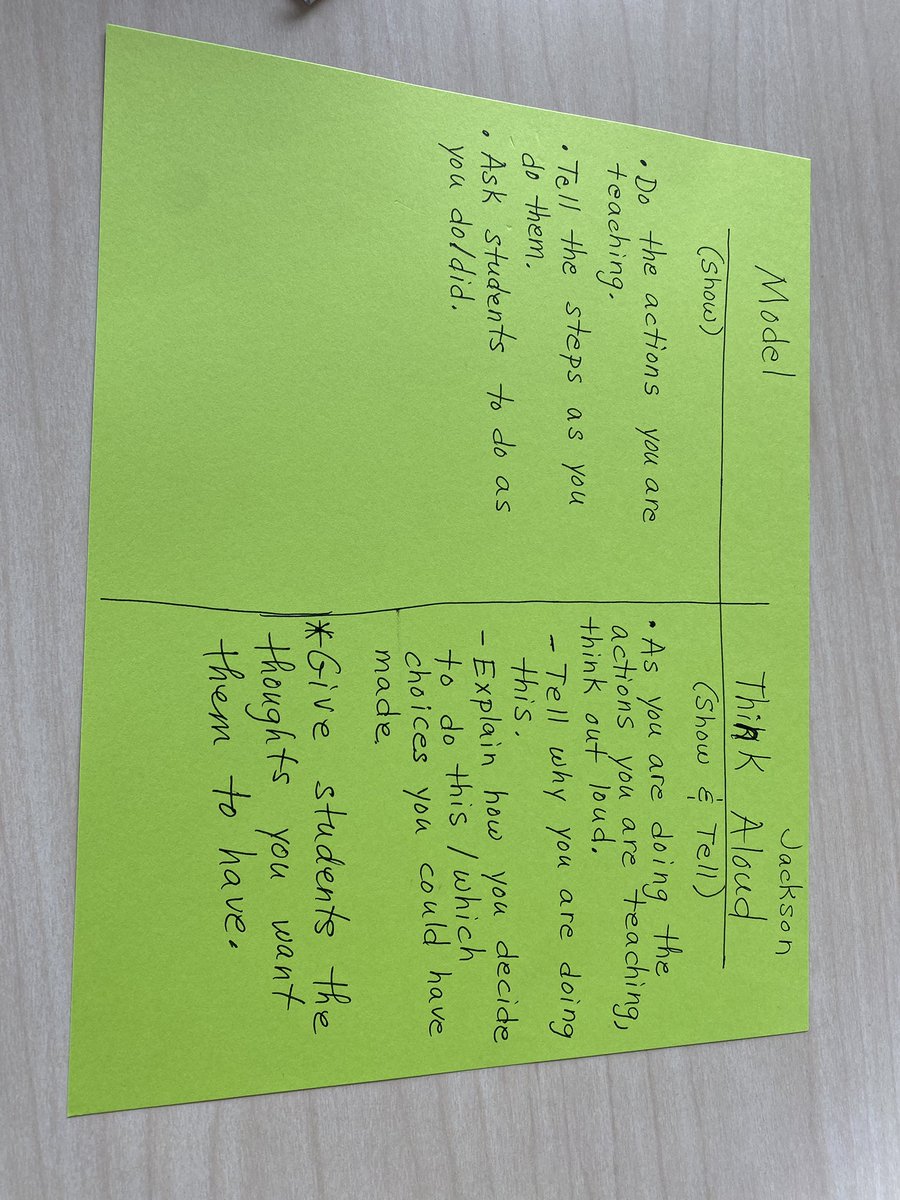 Jackson
Model
(Show)
• Do the actions you are
teaching.
• Tell the steps as you
do them.
• Ask students to do as
you do/did.
Think Aloud
(Show & Tell)
• As you are doing the
actions you are teaching,
think out loud.
- Tell why you are doing
this.
- Explain how you decide
to do this / which
choices you could have
made.
*Give students the
thoughts you want
them to have.